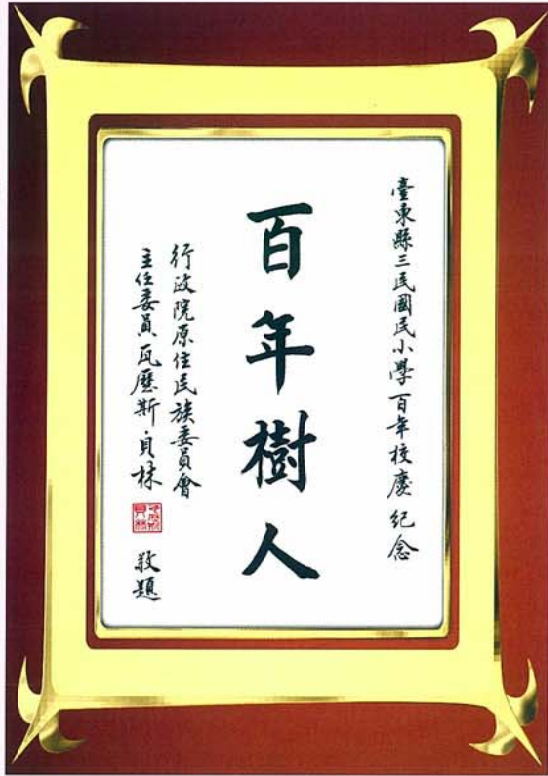 臺東縣三民國民小學百年校慶 紀念
百年樹人
行政院原住民族委員會
主任委員 瓦歷斯·貝林
敬題